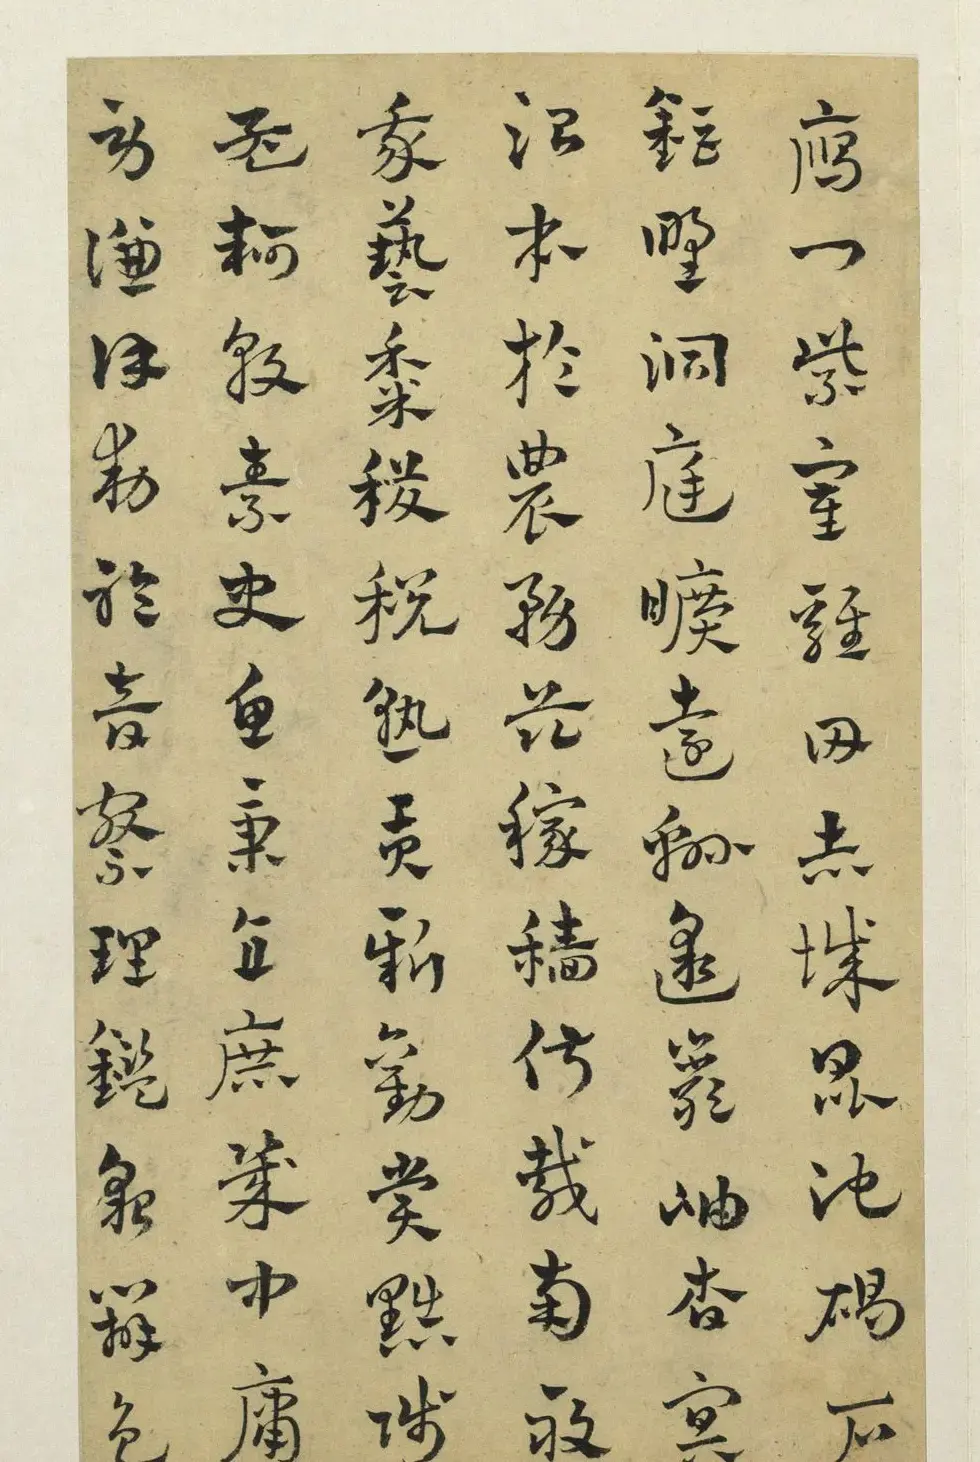 鴈门紫塞雞田赤城昆池碣石
鉅野洞庭曠遠緜邈巖岫杳冥
治本於農務茲稼穡俶載南畝
我藝黍稷稅熟貢新勸賞黜陟
孟軻敦素史魚秉直庶幾中庸
勞謙謹勑聆音察理鑑貌辨色